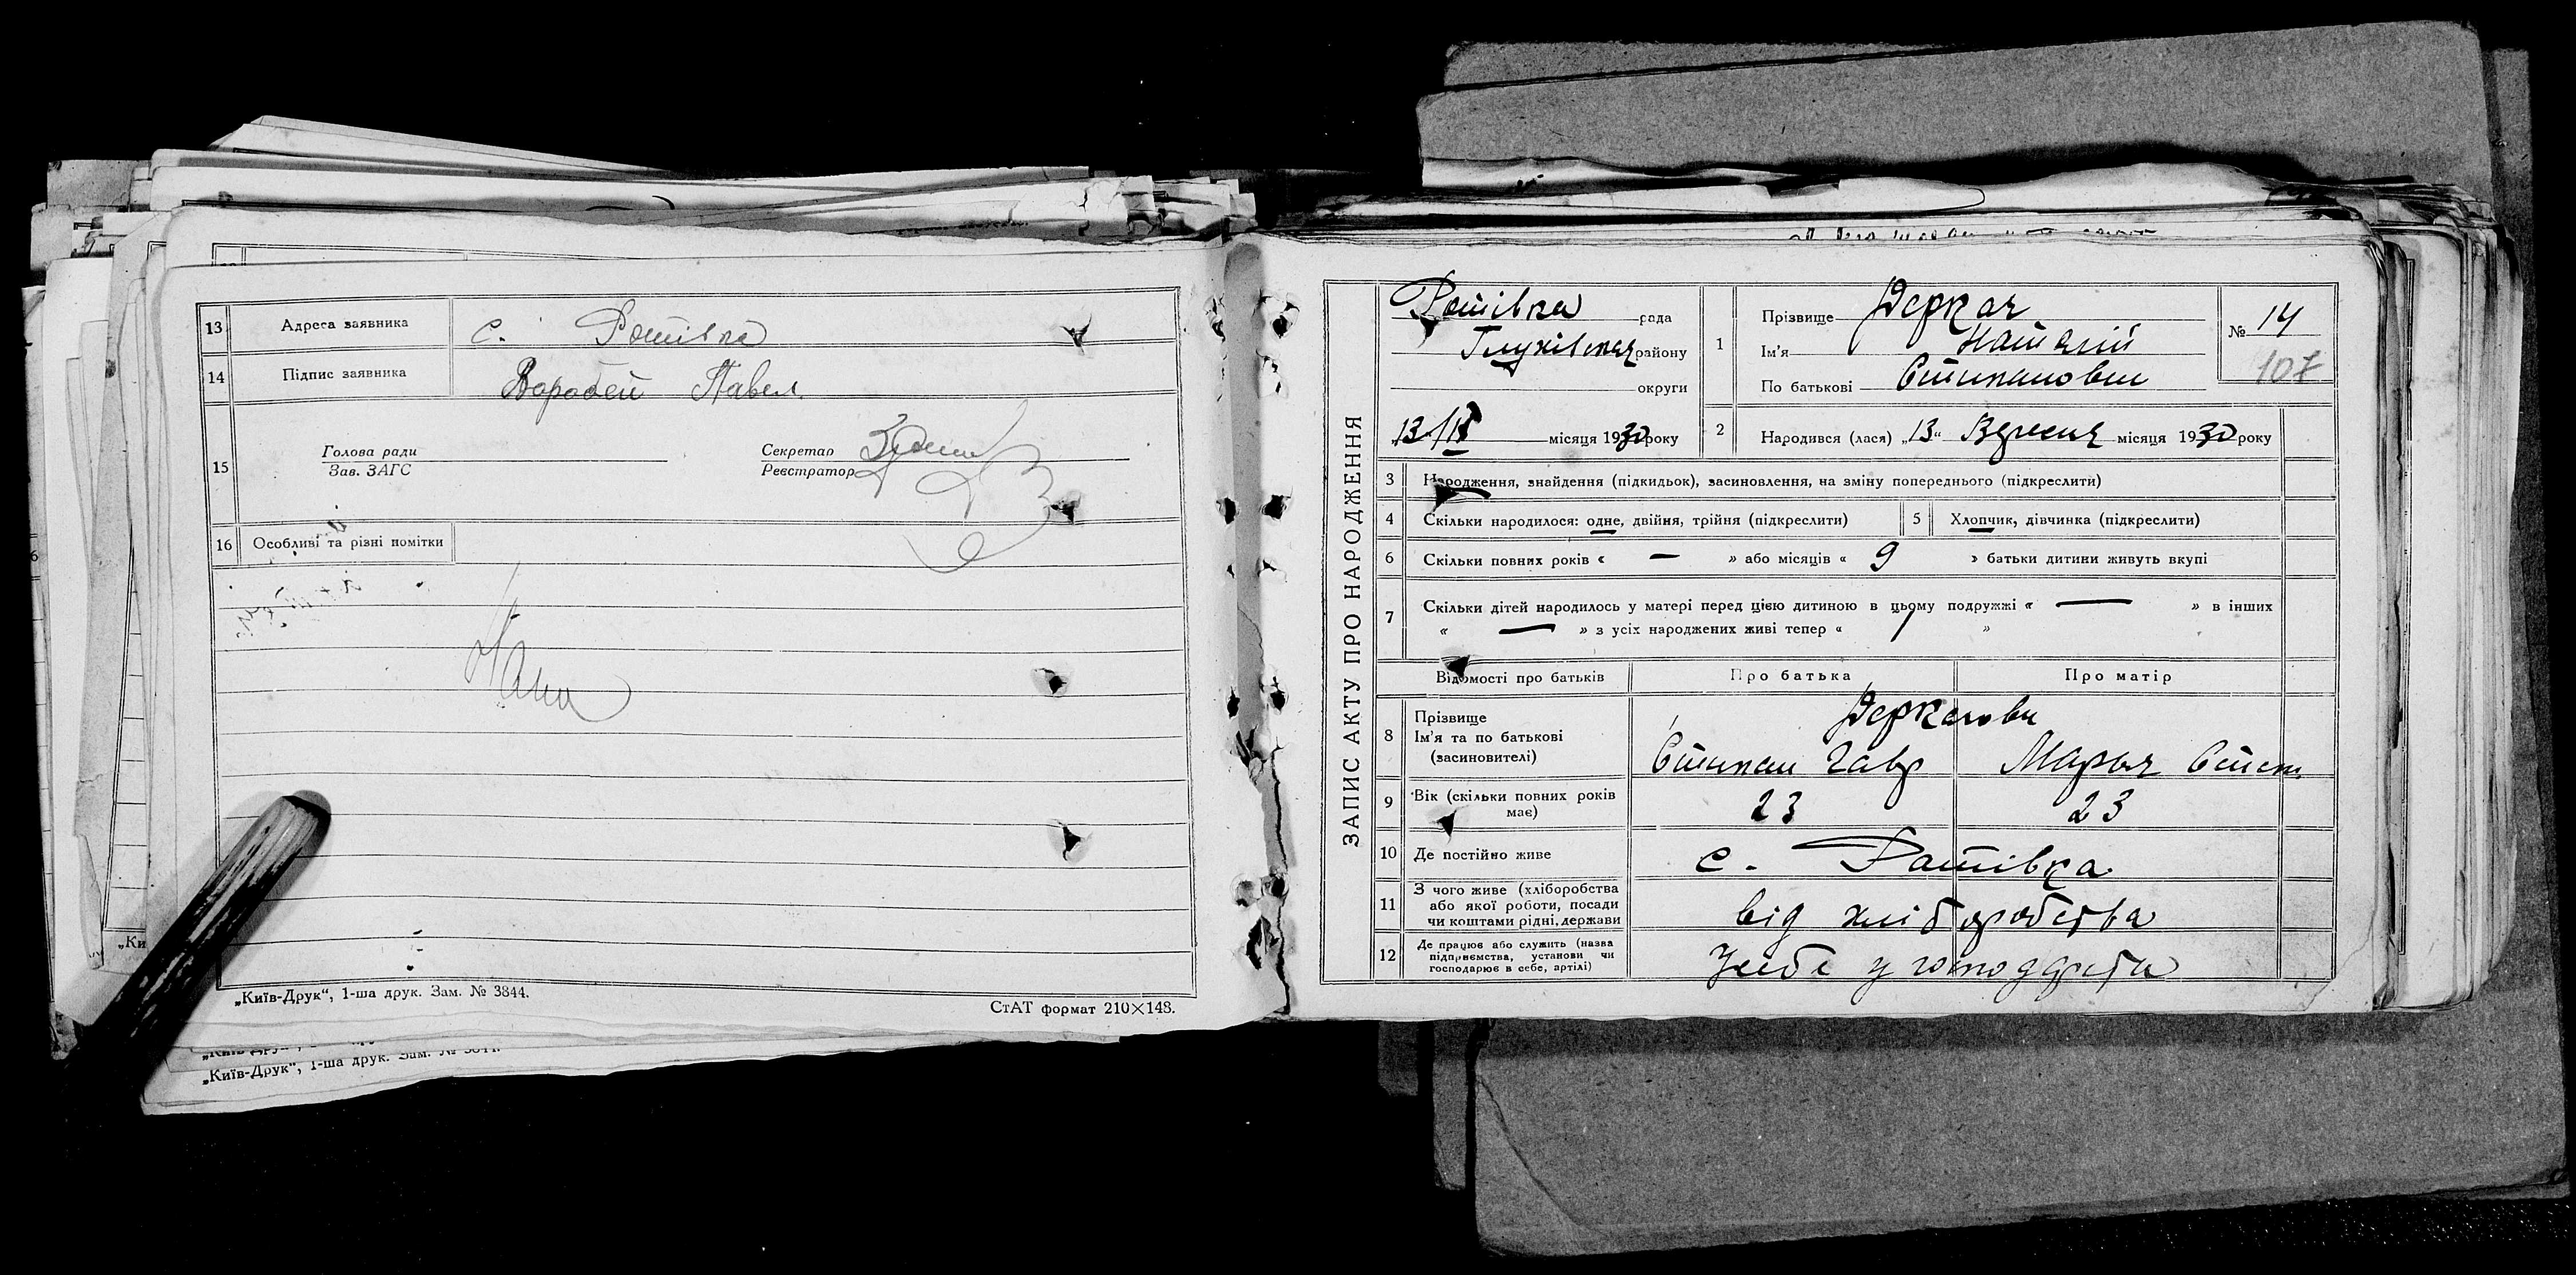 13 Адреса заявника с. Ротівка
14 Підпис заявника Воробей Павел
15 Голова ради
Зав. ЗАГС
Секретар
Реєстратор
16 Особливі та різні помітки
„Київ-Друк“, 1-ша друк. Зам. № 3844.
СтАТ формат 210×148.
„Київ-Друк“, 1-ша друк. Зам. №
ЗАПИС АКТУ ПРО НАРОДЖЕННЯ
Ротівка рада
Глухівська району
округи
„13“/IX місяця 1930 року
1 Прізвище Деркач
Ім'я Наталій
По батькові Стипанович
№ 14
107
2 Народився (лася) „13“ Вересня місяця 1930 року
3 Народження, знайдення (підкидьок), засиновлення, на зміну попереднього (підкреслити)
4 Скільки народилося: одне, двійня, трійня (підкреслити)
5 Хлопчик, дівчинка (підкреслити)
6 Скільки повних років « — » або місяців « 9 » батьки дитини живуть вкупі
7 Скільки дітей народилось у матері перед цією дитиною в цьому подружжі « — » в інших
« — » з усіх народжених живі тепер « 1 »
Відомості про батьків Про батька Про матір
8 Прізвище
Ім'я та по батькові
(засиновителі)
Деркачови
Стипан Гавр Марья Степ.
9 Вік (скільки повних років має) 23 23
10 Де постійно живе с. Ротівка
11 З чого живе (хліборобства
або якої роботи, посади
чи коштами рідні, держави
від хліборобства
12 Де працює або служить (назва
підприємства, установи чи
господарює в себе, артілі)
У себе у господарстві